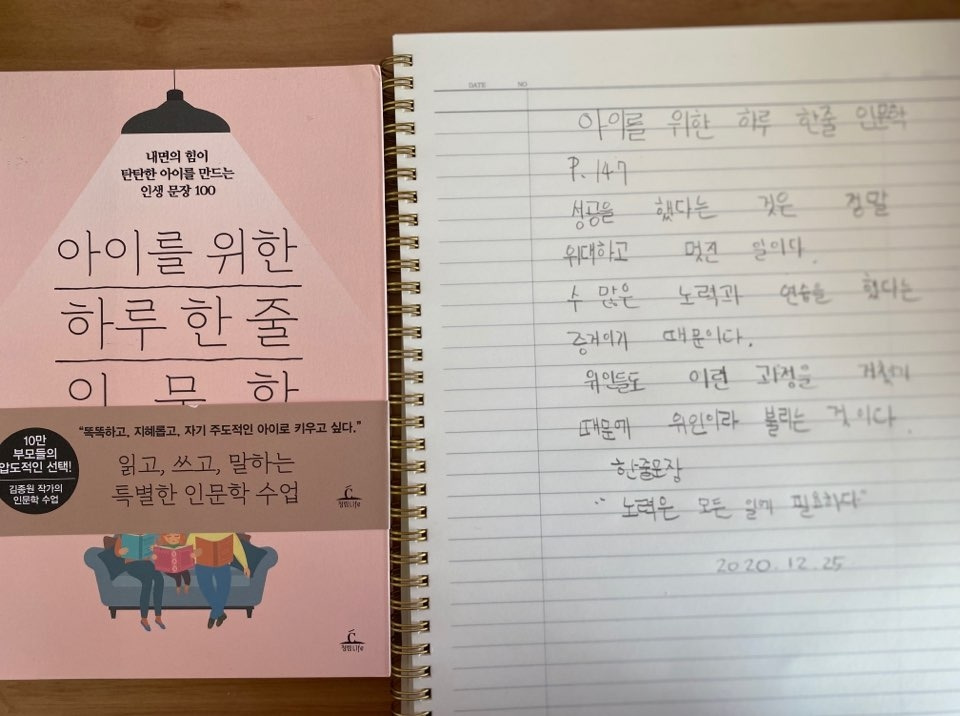 내면의 힘이
탄탄한 아이를 만드는
인생 문장 100
아이를 위한
하루 한 줄
인 문 학
"똑똑하고, 지혜롭고, 자기 주도적인 아이로 키우고 싶다."
10만
부모들의
압도적인 선택!
김종원 작가의
인문학 수업
읽고, 쓰고, 말하는
특별한 인문학 수업
청림Life
청림Life
DATE NO
아이를 위한 하루 한줄 인문학
P. 147
성공을 했다는 것은 정말
위대하고 멋진 일이다.
수 많은 노력과 연습을 했다는
증거이기 때문이다.
위인들도 이런 과정을 거쳤기
때문에 위인이라 불리는 것이다.
한줄문장
"노력은 모든 일에 필요하다"
2020.12.25